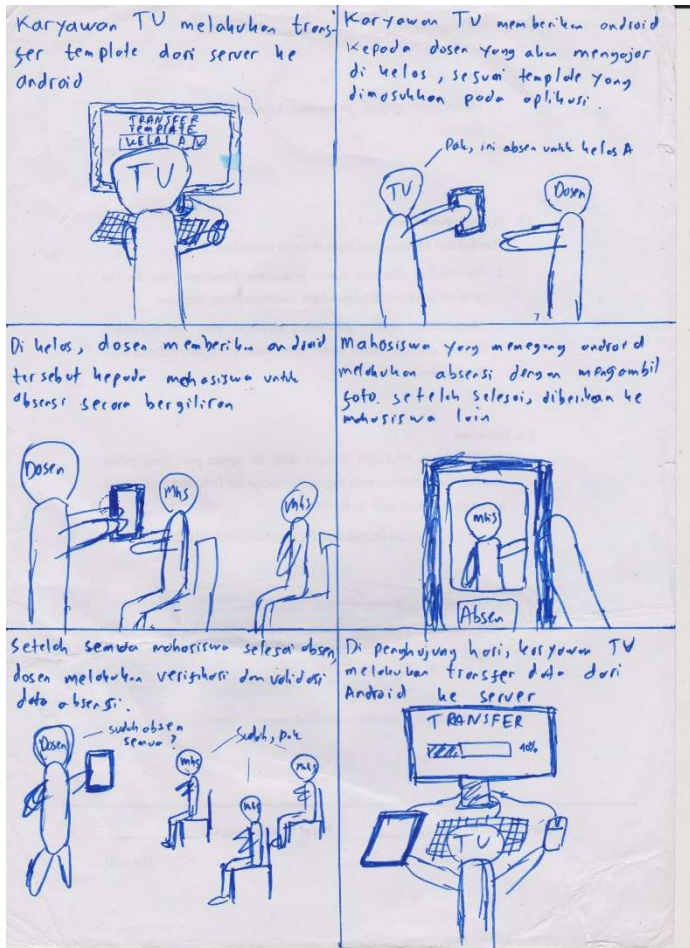 Karyawan TU melakukan trans-
fer template dari server ke
android
TRANSFER
TEMPLATE
KELAS A
TU
Karyawan TU memberikan android
kepada dosen yang akan mengajar
di kelas, sesuai template yang
dimasukkan pada aplikasi.
Pak, ini absen untuk kelas A
TU
Dosen
Di kelas, dosen memberikan android
tersebut kepada mahasiswa untuk
absensi secara bergiliran
Dosen
Mhs
Mhs
Mahasiswa yang memegang android
melakukan absensi dengan mengambil
foto. setelah selesai, diberikan ke
mahasiswa lain
mhs
Absen
Setelah semua mahasiswa selesai absen,
dosen melakukan verifikasi dan validasi
data absensi.
Dosen
sudah absen
semua?
Sudah, pak
mhs
mhs
mhs
Di penghujung hari, karyawan TU
melakukan transfer data dari
Android ke server
TRANSFER
40%
TU